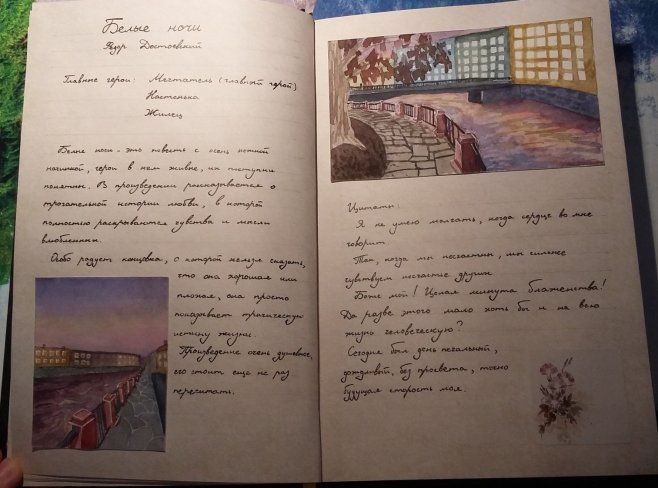 Белые ночи
Фёдор Достоевский
Главные герои: Мечтатель (главный герой)
Настенька
Жилец
Белые ночи - это повесть с очень
начинкой, герои в нем живые, их поступки
понятны. В произведении рассказывается о
трогательной истории любви, в которой
полностью раскрываются чувства и мысли
влюбленных.
Особо радует концовка, о которой нельзя сказать,
что она хорошая или
плохая, она просто
показывает трагическую
истину жизни.
Произведение очень душевное,
его стоит еще не раз
перечитать.
Цитаты:
Я не умею молчать, когда сердце во мне
говорит.
Так, когда мы несчастны, мы сильнее
чувствуем несчастье других.
Боже мой! Целая минута блаженства!
Да разве этого мало хоть бы и на всю
жизнь человеческую?
Сегодня был день печальный,
дождливый, без просвета, точно
будущая старость моя.